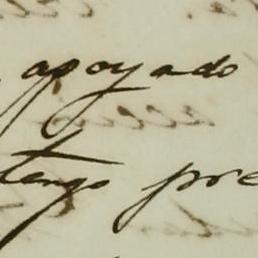 apoyado
tengo pre